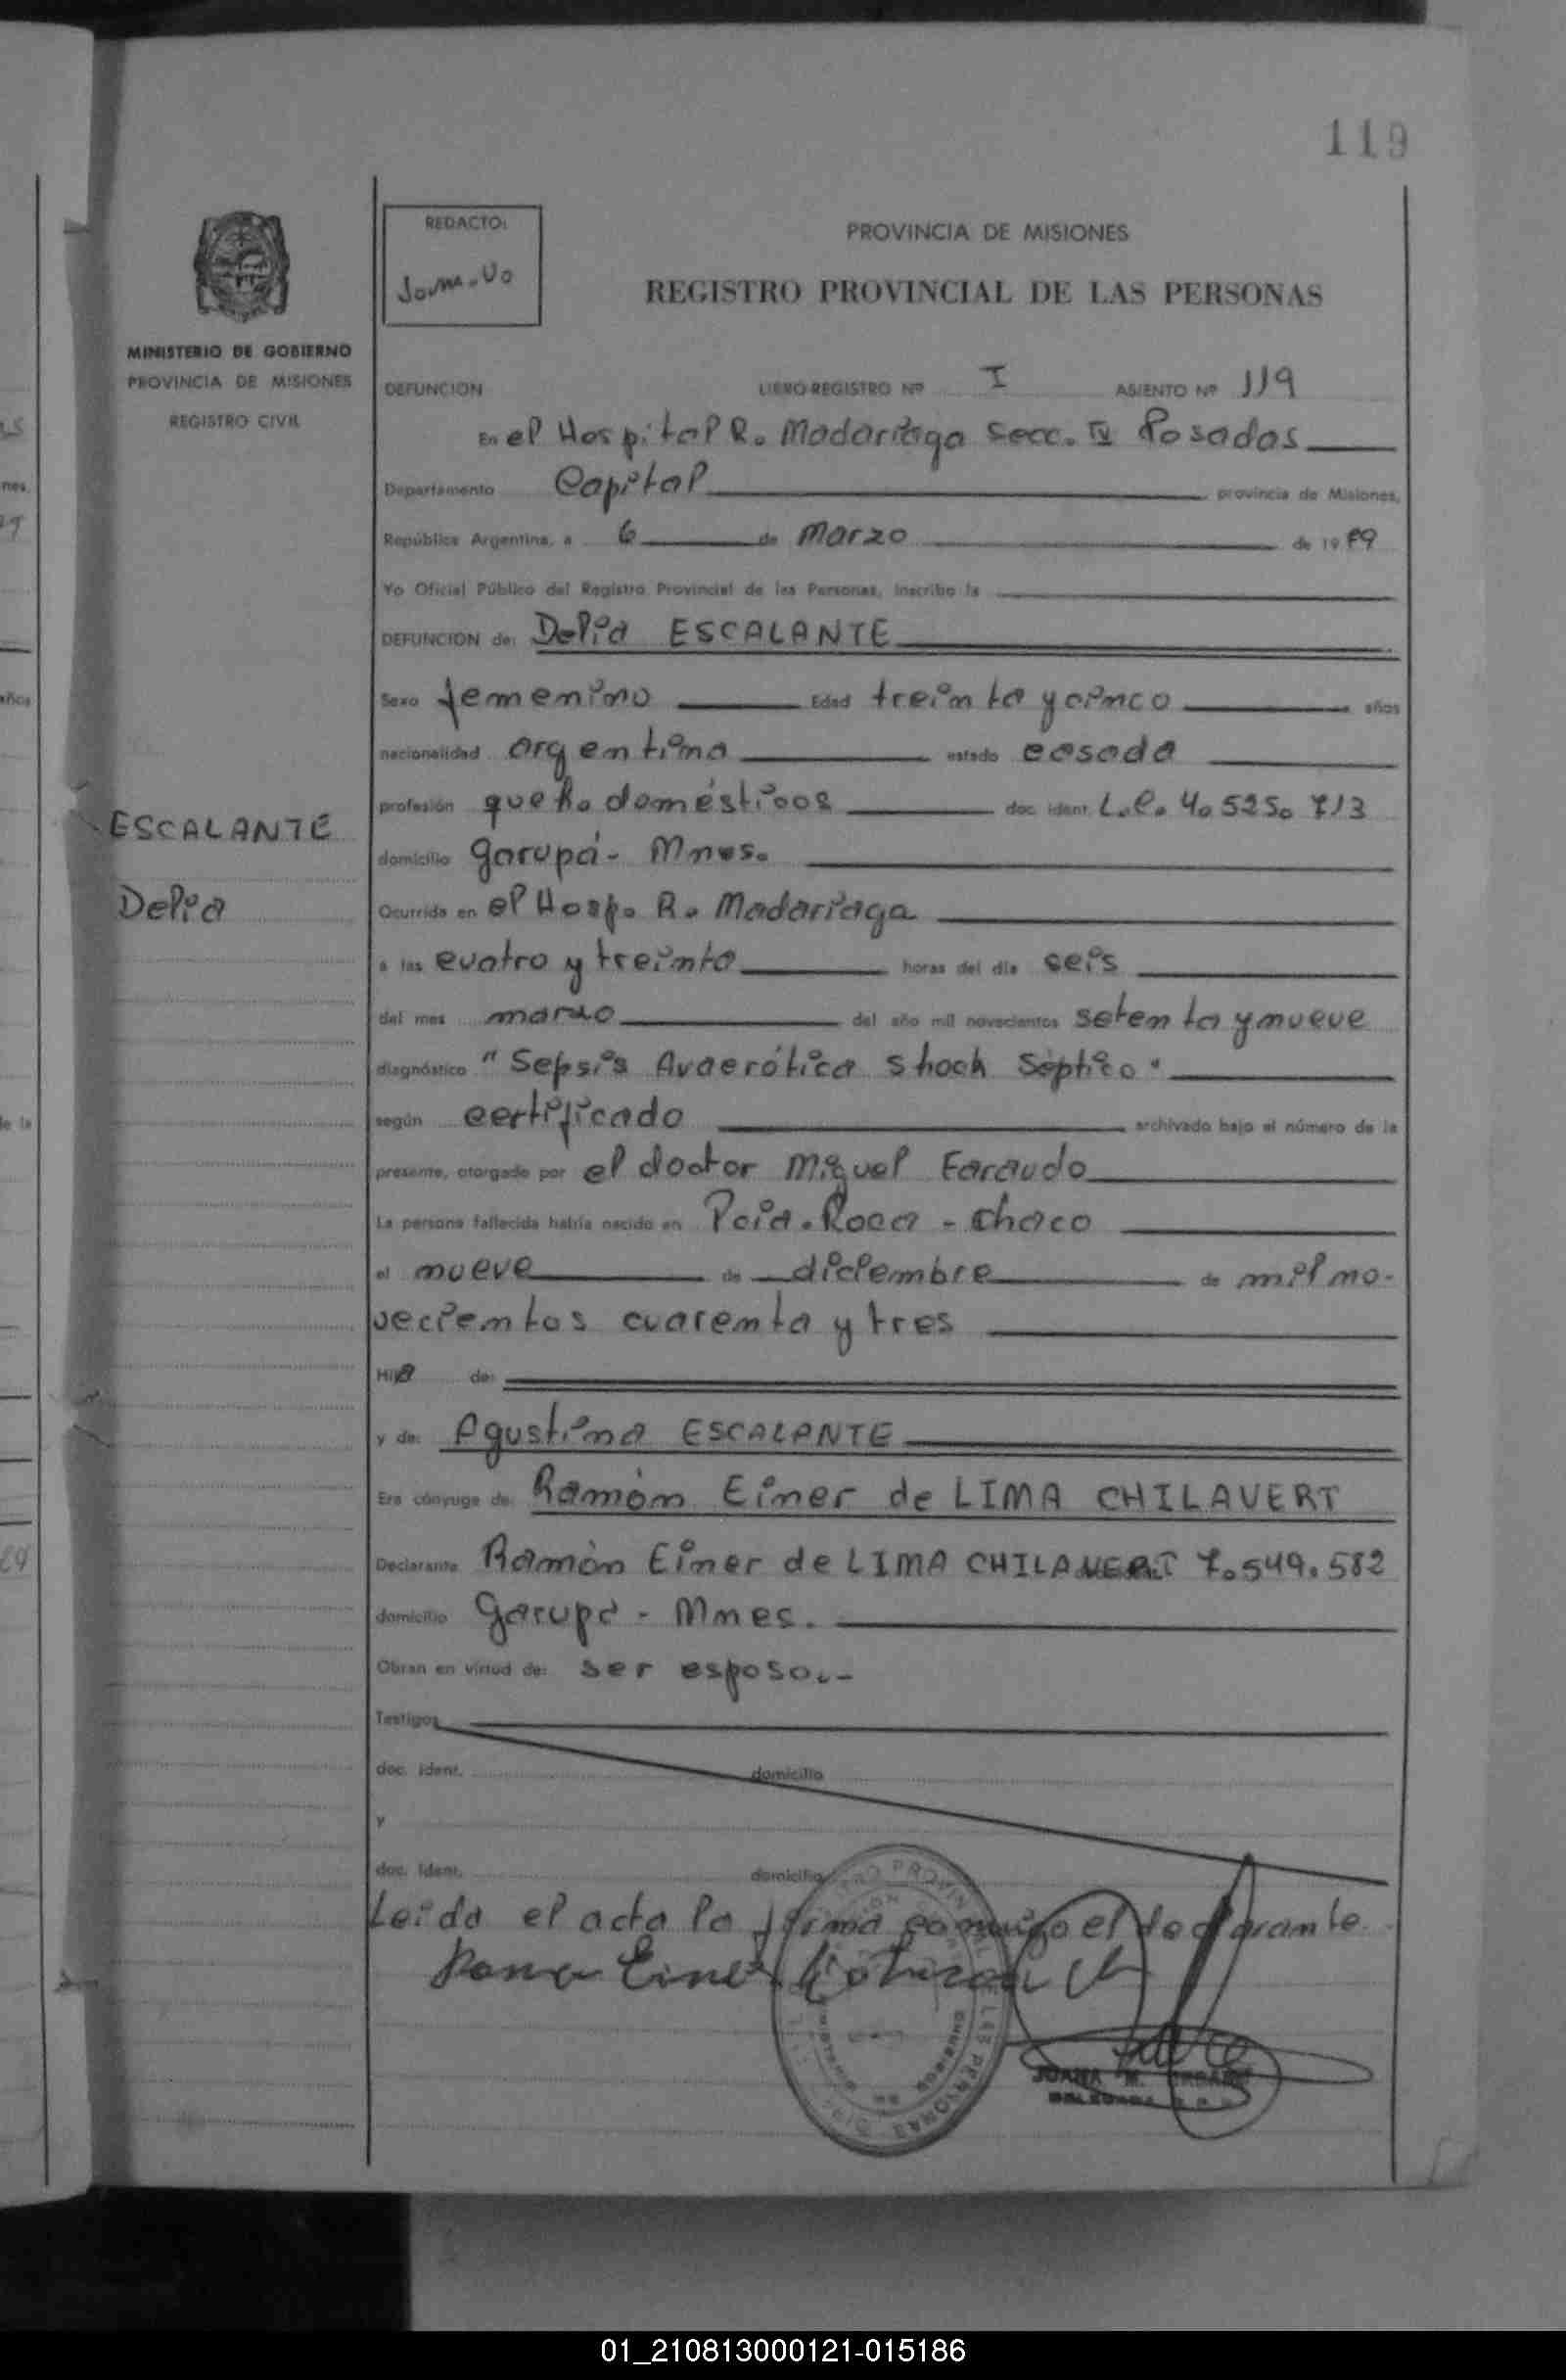 119
REDACTO:
PROVINCIA DE MISIONES
REGISTRO PROVINCIAL DE LAS PERSONAS
MINISTERIO DE GOBIERNO
PROVINCIA DE MISIONES
REGISTRO CIVIL
DEFUNCION LIBRO-REGISTRO Nº I ASIENTO Nº 119
En el Hospital R. Madariaga Secc. IV Posadas
Departamento Capital provincia de Misiones,
República Argentina, a 6 de Marzo de 1979
Yo Oficial Público del Registro Provincial de las Personas, inscribo la
DEFUNCION de: Delia ESCALANTE
Sexo femenino Edad treinta y cinco años
nacionalidad argentina estado casada
profesión queh. domésticos doc. ident. L.C. 4.525.713
ESCALANTE
domicilio Garupá - Mnes.
Delia
Ocurrida en el Hosp. R. Madariaga
a las cuatro y treinta horas del día seis
del mes marzo del año mil novecientos setenta y nueve
diagnóstico "Sepsis Avaerótica Shock Séptico"
según certificado archivado bajo el número de la
presente, otorgado por el doctor Miguel Faraudo
La persona fallecida había nacido en Pcia. Roca - Chaco
el nueve de diciembre de mil no-
vecientos cuarenta y tres
Hija de:
y de: Agustina ESCALANTE
Era cónyuge de: Ramón Einer de LIMA CHILAVERT
Declarante Ramón Einer de LIMA CHILAVERT 7.549.582
domicilio Garupá - Mnes.
Obran en virtud de: ser esposo.-
Testigos
doc. ident. domicilio
y
doc. ident. domicilio
Leída el acta la firma conmigo el declarante.
JUANA M.
DELEGADA
01_210813000121-015186